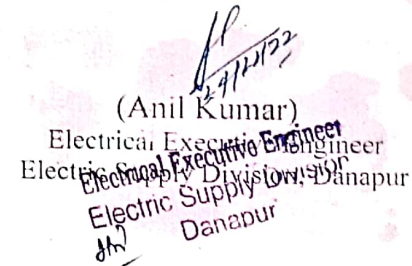 (Anil Kumar)
Electrical Executive Engineer
Electric Supply Division, Danapur
Electrical Executive Engineer
Electric Supply Division
Danapur